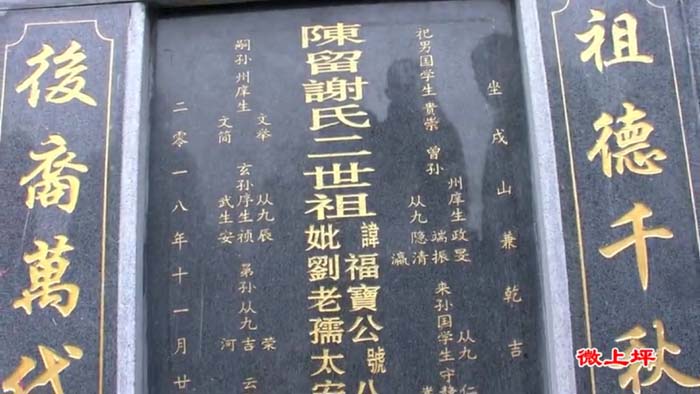 祖德千秋
坐戌山兼乾吉
祀男国学生貴崇 曾孙 州庠生政旻 端振 从九隐清 瀛 来孙国学生守 从九仁
陳留謝氏二世祖 諱福寶公號八 妣劉老孺太安
嗣孙州庠生 文举 文简 玄孙庠生祯 从九辰 武生安 苐孙从九吉 荣 云 河
二零一八年十一月廿
後裔萬代
微上坪